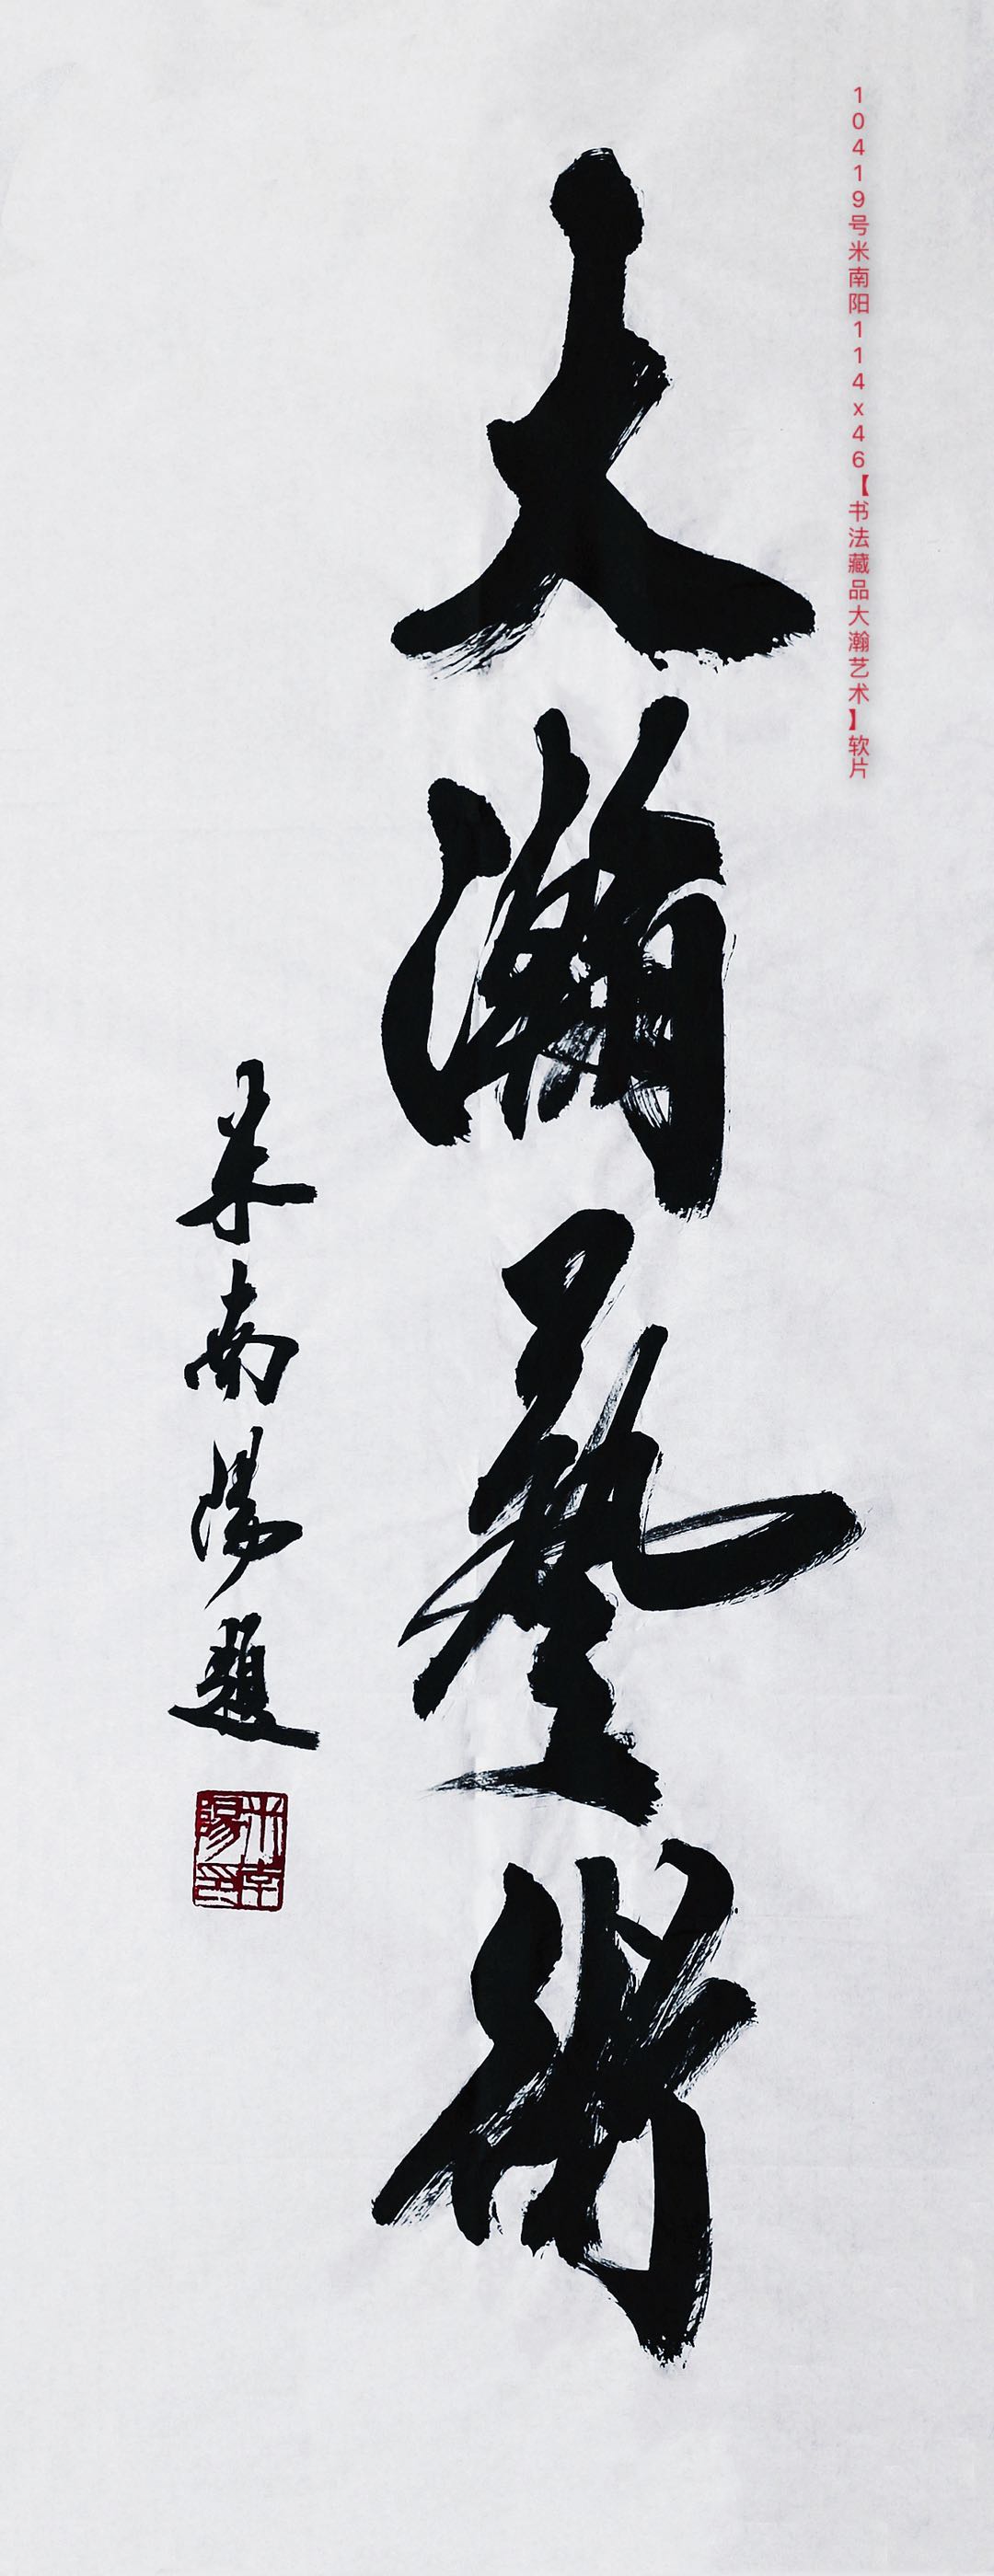 10419号米南阳114x46【书法藏品大瀚艺术】软片
大瀚藝術
米南陽題
米南陽印